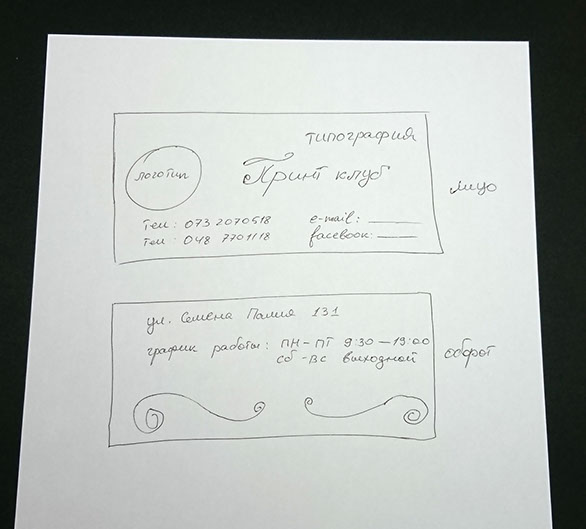 типография
логотип
Принт клуб
лицо
тел: 073 2070518
e-mail:
тел: 048 7701118
facebook:
ул. Семена Палия 131
график работы: ПН-ПТ 9:30-19:00
оборот
сб-вс выходной